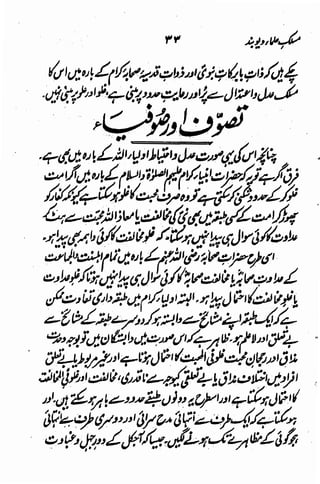 مسلک علماء دیوبند
۳۳
چکے ہیں کہ ذات بابرکات نبویؐ اور ذوات قدسیہ صحابہ کرام کے بارہ میں اس کا
مسلک عدل واعتدال سے پُر اور رعایت حدود پر مبنی ہے، غلو اور علو پر مبنی نہیں۔
تصوّف اور صُوفیاء
چنانچہ اس کی یہی صورت عدل واحتیاط اولیاء اللہ کے بارہ میں بھی ہے۔
فرق اگر ہے تو یہ کہ حضرات انبیاء کرام علیہم الصلوٰۃ والسلام کے بارہ میں اگر امت
غلو کر کے حد سے نکل سکتی ہے تو وہ صرف محبت کا غلو ہو سکتا ہے کیونکہ کفار کو
چھوڑ کر امت کے کسی طبقہ میں بھی نبی کی مخالفت یا معاذ اللہ محبت سے ہٹ کر
عداوت کا کوئی سوال ہی پیدا نہیں ہو سکتا۔ کہ غلو مخالفت کا کوئی واہمہ بھی پیدا ہو۔
اسی طرح حضرات صحابہ رضی اللہ عنہم کے بارہ میں تمام اہلسنت والجماعت
کے عداوت صحابہؓ یا مخالفت صحابہؓ کا کوئی سوال ہی پیدا نہیں ہوتا کہ غلو عداوت
یا غلو مخالفت کا احتمال پیدا ہو۔ البتہ اولیاء کرام میں طبقہ داری تفاوت ممکن
ہے کہ ایک طبقہ اپنے مشائخ سے وابستہ ہو کر دوسرے طبقہ کے مشائخ سے
بے تعلق اور لاعلم ہو۔ ظاہر ہے کہ اس صورت میں وابستگان میں تو بوجہ وحدت
مذاق اور رجحان محبت غلو فی المحبت کا احتمال ہوتا ہے اور غیر مربوط یا بے تعلق
افراد میں اختلاف مذاق یا بے تعلقی کیوجہ سے ناقدری، مخالفت اور غلو فی المخالفت
کا احتمال ہو سکتا ہے اور اسطرح یہ دونوں طبقے حدود سے باہر ہو سکتے ہیں۔ اور
ہو سکتا ہے کہ ایک طرف سے انتہائی مدح سرائی اور دوسری طرف سے انتہائی
ہجو گوئی کے مظاہرے تک ہونے لگیں۔ جیسا کہ آجکل کے دور جہل و غباوت